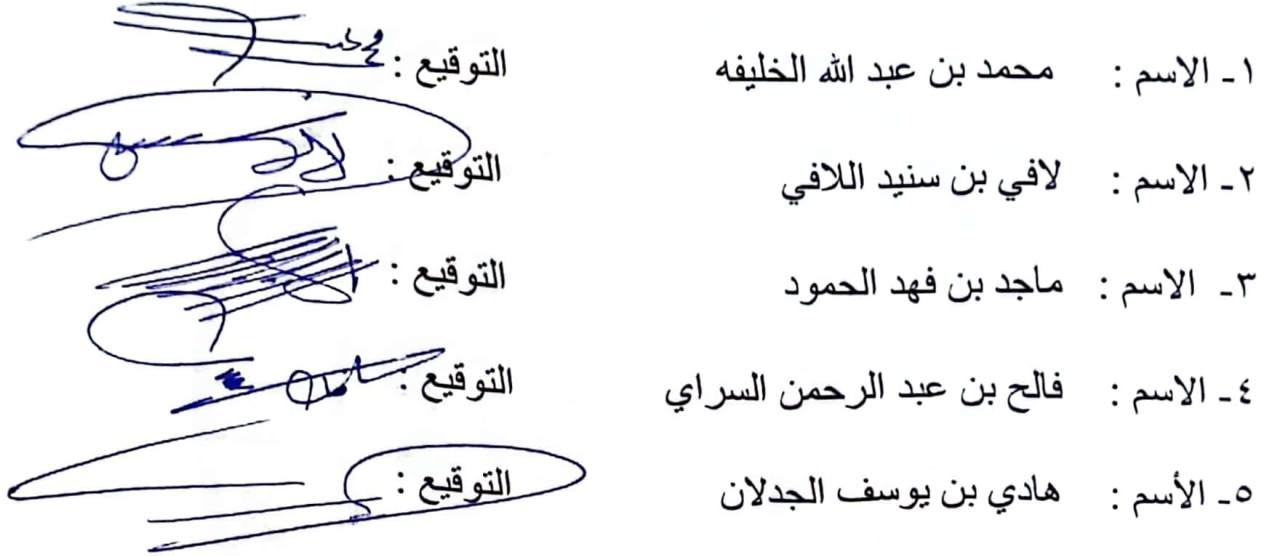 ١- الاسم : محمد بن عبد الله الخليفه التوقيع :
٢- الاسم : لافي بن سنيد اللافي التوقيع :
٣- الاسم : ماجد بن فهد الحمود التوقيع :
٤- الاسم : فالح بن عبد الرحمن السراي التوقيع :
٥- الأسم : هادي بن يوسف الجدلان التوقيع :